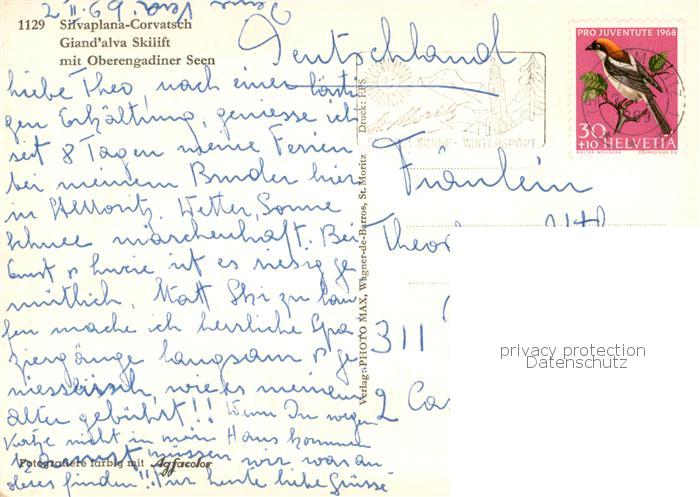 1129 Silvaplana-Corvatsch
Giand'alva Skilift
mit Oberengadiner Seen
Deutschland
liebe Theo, nach einer lästi
gen Erkältung, geniesse ich
seit 8 Tagen meine Ferien
bei meinem Bruder hier
in St. Moritz. Wetter, Sonne
Schnee märchenhaft. Bei
Ernst & ist es riesig ge
mütlich. Statt Ski zu lau
fen mache ich herrliche Spa
ziergänge langsam & ge
niesserisch, wie es meinem
alter gebührt!! Wenn Du wegen
Katze nicht in mein Haus kommen
kannst müssen wir wo an
deres finden!! Für heute liebe Grüsse
Deine
Fotografiere farbig mit Agfacolor
Verlag: PHOTO MAX, Wagner-de-Barros, St. Moritz
Druck: EFS
St. Moritz
SONNE WINTERSPORT
PRO JUVENTUTE 1968
30
+10 HELVETIA
Fräulein
Theo
311
2 Ca
privacy protection
Datenschutz